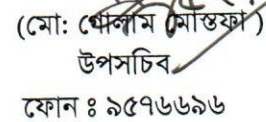 (মো: গোলাম মোস্তফা)
উপসচিব
ফোন ঃ ৯৫৭৬৬৯৬